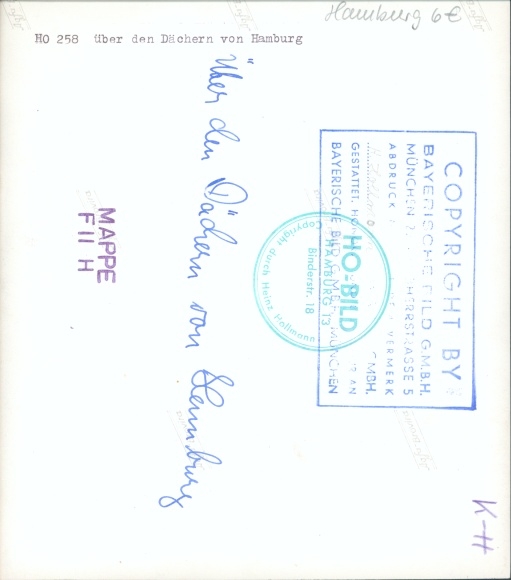 Hamburg 6€
HO 258 über den Dächern von Hamburg
Über den Dächern von Hamburg
MAPPE
F II H
COPYRIGHT BY
BAYERISCHE BILD G.M.B.H.
MÜNCHEN HERRSTRASSE 5
ABDRUCK VERMERK
GMBH.
GESTATTET. AN
BAYERISCHE BILD G.M.B.H. MÜNCHEN
HO-BILD
HAMBURG 13
Binderstr. 18
Copyright durch Heinz Hollmann
K-H